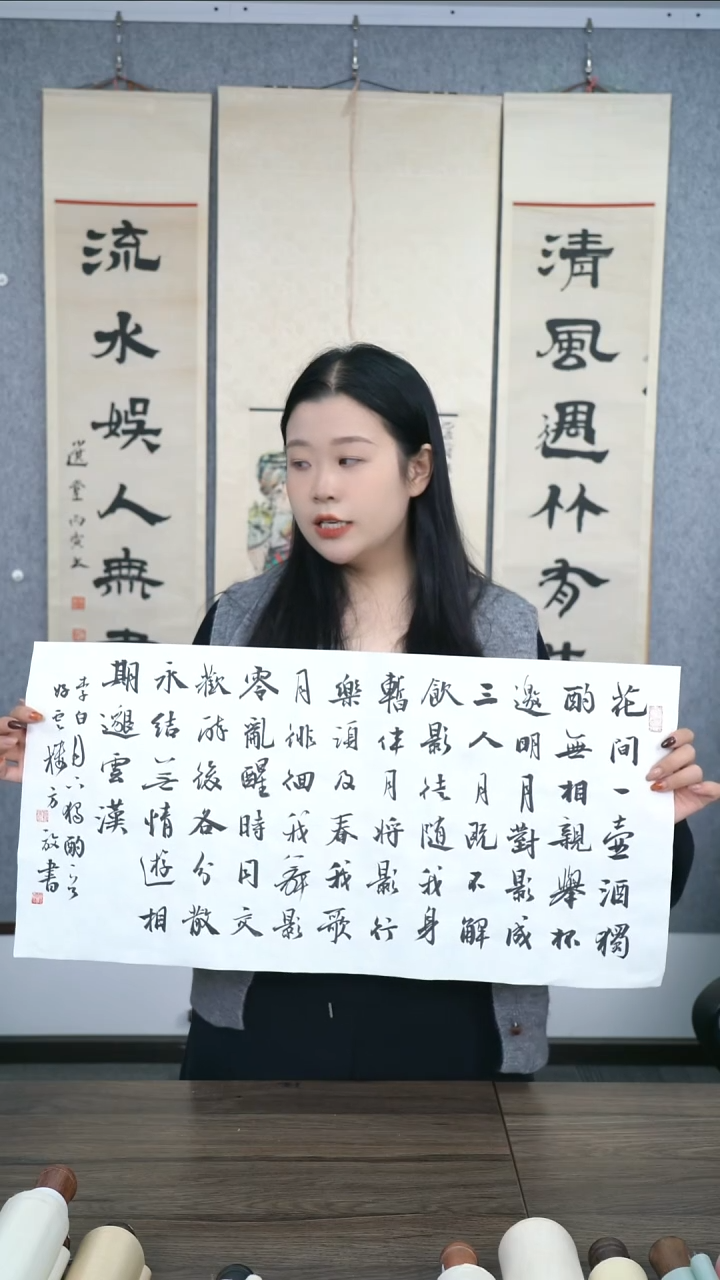 清風週竹有
流水娛人無
選堂丙寅
花間一壺酒獨
酌無相親舉杯
邀明月對影成
三人月既不解
飲影徒隨我身
暫伴月將影行
樂須及春我歌
月徘徊我舞影
零亂醒時同交
歡醉後各分散
永結無情遊相
期邈雲漢
李白月下獨酌
好雲樓方放書